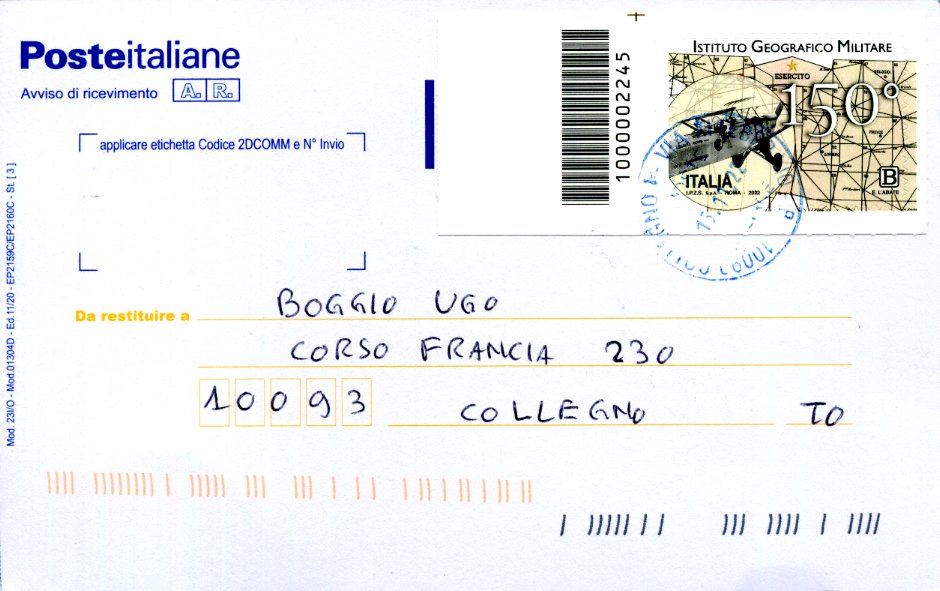 Posteitaliane
Avviso di ricevimento A. R.
applicare etichetta Codice 2DCOMM e N° Invio
Mod. 23I/O - Mod.01304D - Ed.11/20 - EP2159C/EP2160C - St. [3]
1000002245
ISTITUTO GEOGRAFICO MILITARE
ESERCITO
150°
ITALIA
I.P.Z.S. S.p.A. - ROMA - 2022
B
E. L'ABATE
Da restituire a BOGGIO UGO
CORSO FRANCIA 230
10093 COLLEGNO TO